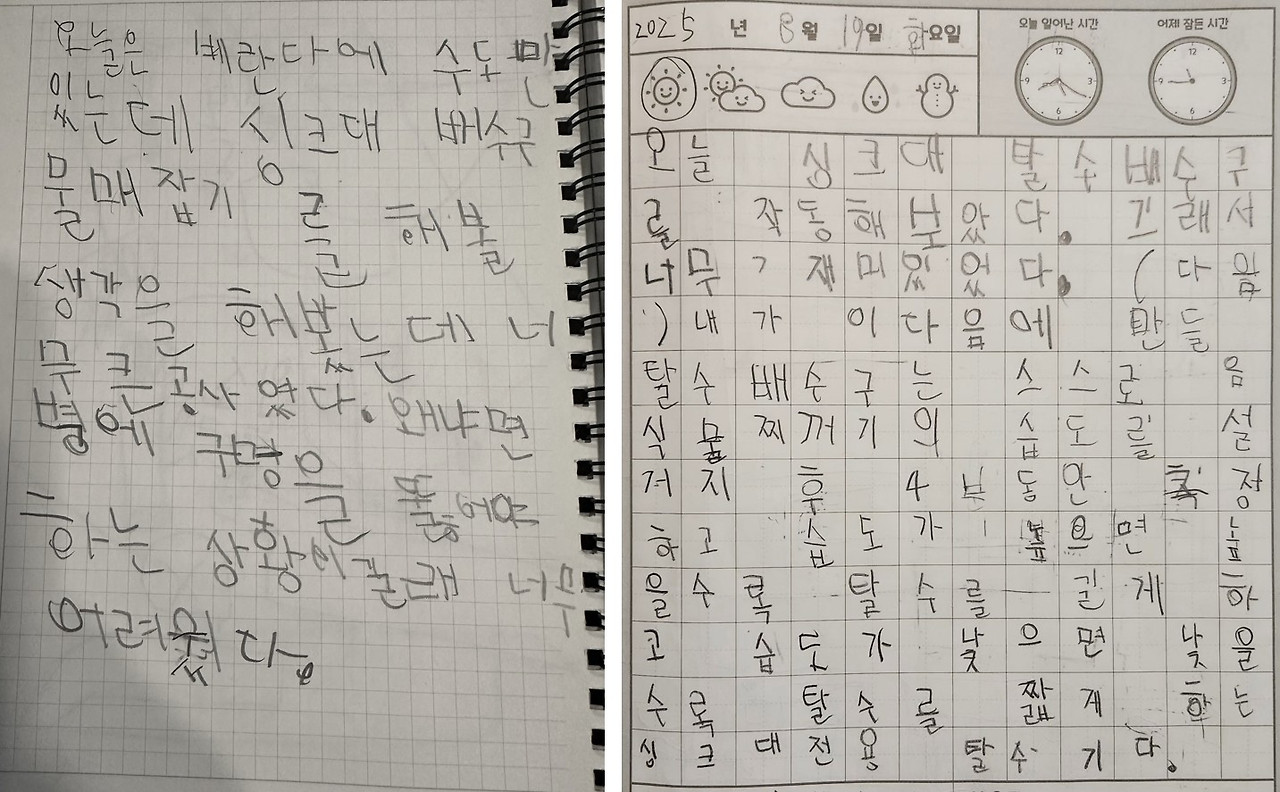 오늘은 베란다에 수도만
있는데 싱크대 배수구
물매잡기를 해볼
생각을 해봤는데 너
무 큰 공사 였다. 왜냐면
벽에 구멍을 뚫어야
하는 상황이 길래 너무
어려웠다.
2025 년 8월 19일 화요일
오늘 일어난 시간 어제 잠든 시간
오늘 싱크대 탈수배수구
를 작동해 보았다. 그래서
너무 재미있었다. (다음
) 내가 이다음에 만들
탈수배수구는 스스로 음
식물찌꺼기의 습도를 설
저지 후 4부동안 측정
하고 습도가 높으면 높
을수록 탈수를 길게 하
고 습도가 낮으면 낮을
수록 탈수를 짧게 하는
싱크대전용 탈수기다.